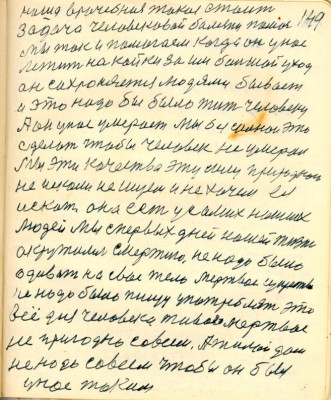 наша врачебная такая стоит 149
задача человековой болезни помоч
мы так и помогаем когда он у нас
лежит на койки за им большой уход
он сохроняется людями бывает
и это надо бы было жит человеку
А он у нас умерает Мы без силной это
сделат чтобы человек не умерал
Мы эти качества эту силу природную
не искали не ищем и не хочем ея
искат она ест у самих наших
людей Мы с первых дней нашей жизни
окружилис смертию, не надо было
одеват на свае тело мертвое
не надо было пищу употреблят это
всё для человека живое мертвое
не пригодно совсем. А жилой дом
не надо совсем чтобы он был
у нас таким